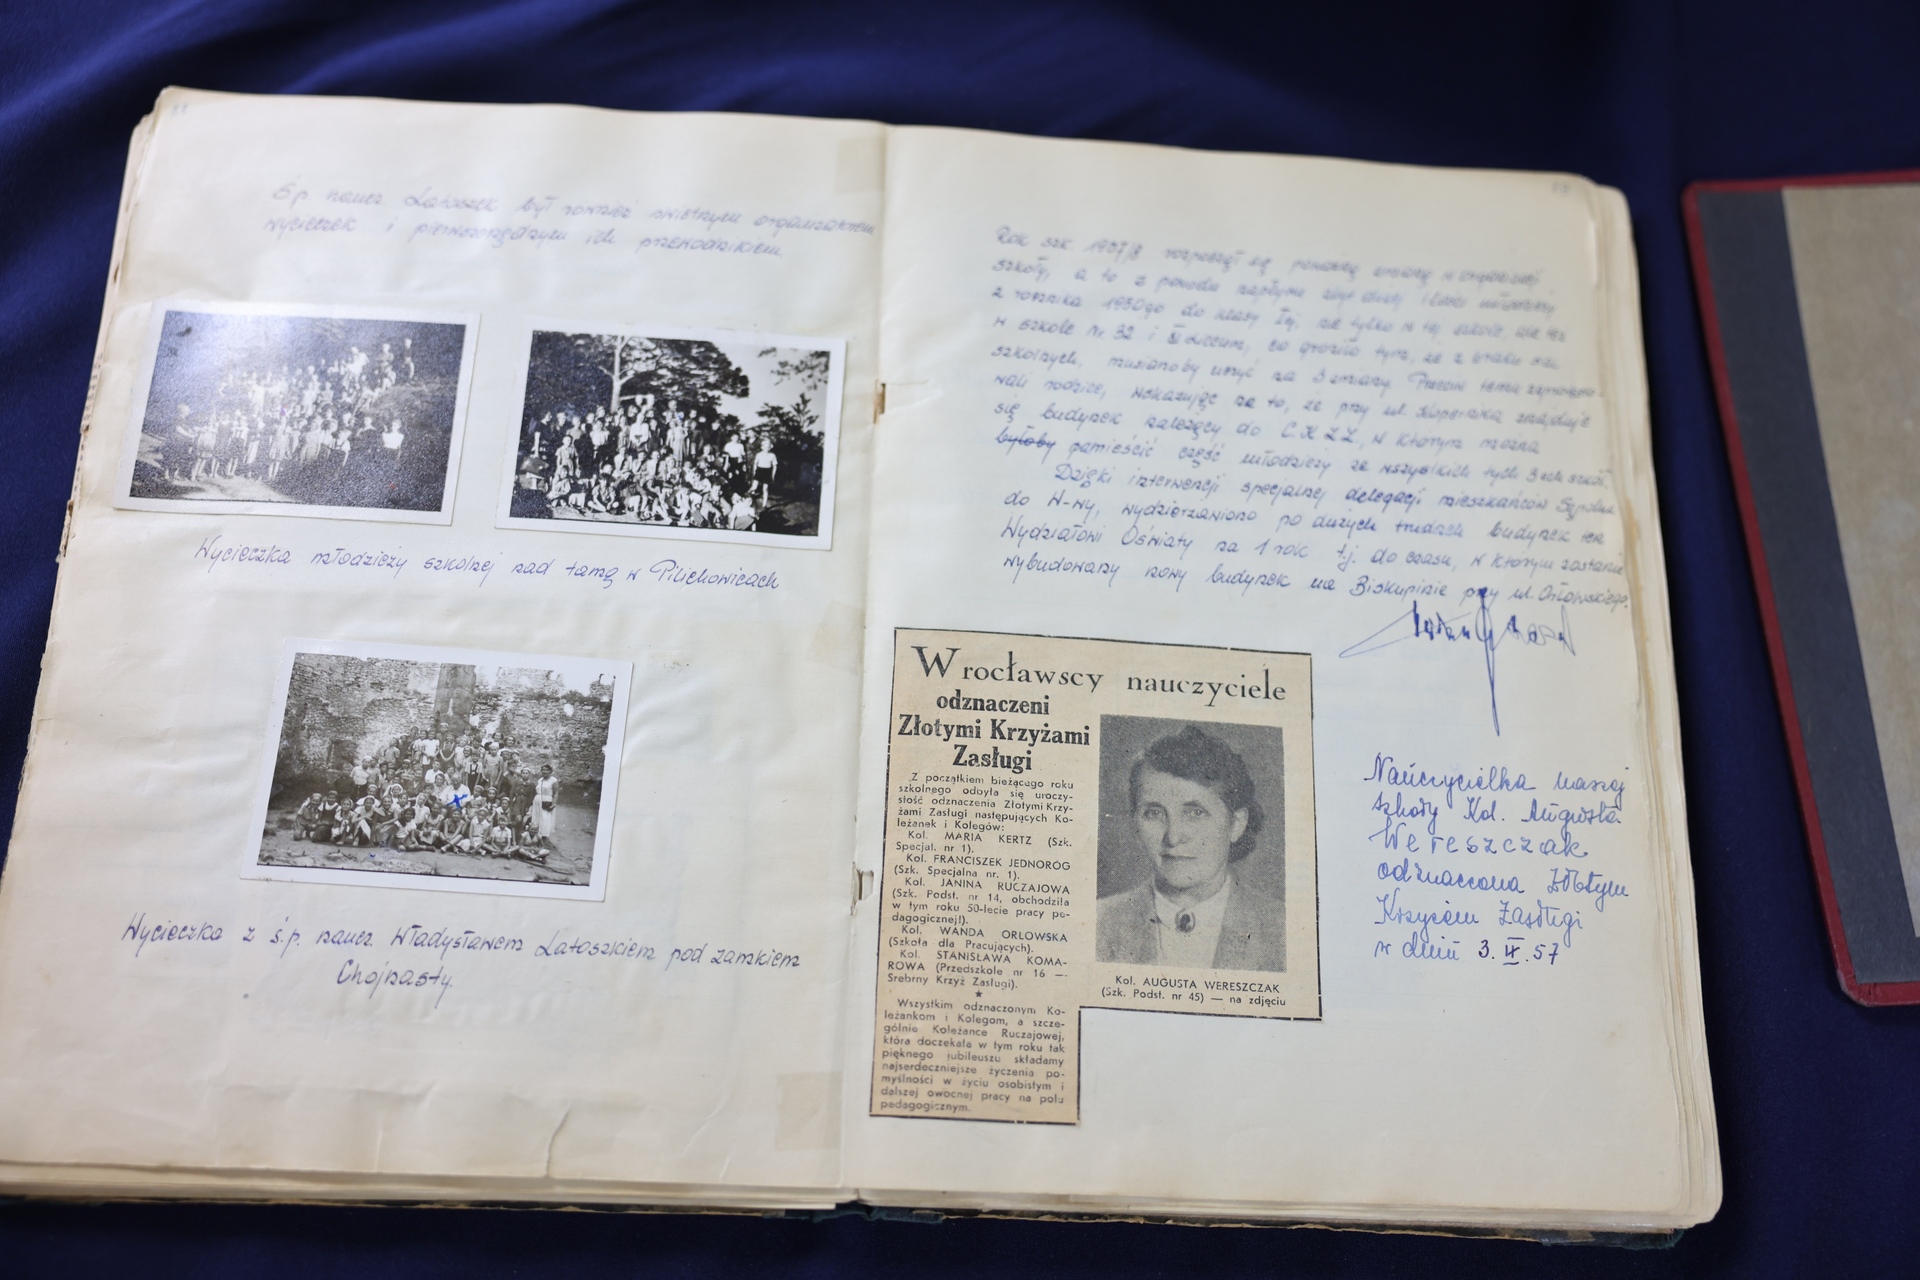 Śp. naucz. Latoszek był również świetnym organizatorem
wycieczek i pierwszorzędnym ich przewodnikiem.
Wycieczka młodzieży szkolnej nad tamą w Pilichowicach
Wycieczka z ś.p. naucz. Władysławem Latoszkiem pod zamkiem
Chojnasty.
Rok szk. 1957/8 rozpoczął się poważną zmianą w organizacji
szkoły, a to z powodu napływu zbyt dużej ilości młodzieży
z rocznika 1950go do klasy Iej, nie tylko w tej szkole, ale też
w szkole Nr 32 i XI Liceum, co groziło tym, że z braku sal
szkolnych, musianoby uczyć na 3 zmiany. Przeciw temu zaprotesto-
wali rodzice, wskazując na to, że przy ul. Kopernika znajduje
się budynek należący do C.R.Z.Z., w którym można
byłoby pomieścić część młodzieży ze wszystkich tych 3ech szkół.
Dzięki interwencji specjalnej delegacji mieszkańców Sępolna
do W-wy, wydzierżawiono po dużych trudach budynek ten
Wydziałowi Oświaty na 1 rok t.j. do czasu, w którym zostanie
wybudowany nowy budynek na Biskupinie przy ul. Orłowskiego.
Wrocławscy nauczyciele
odznaczeni
Złotymi Krzyżami
Zasługi
Z początkiem bieżącego roku
szkolnego odbyła się uroczy-
stość odznaczenia Złotymi Krzy-
żami Zasługi następujących Ko-
leżanek i Kolegów:
Kol. MARIA KERTZ (Szk.
Specjal. nr 1).
Kol. FRANCISZEK JEDNORÓG
(Szk. Specjalna nr. 1).
Kol. JANINA RUCZAJOWA
(Szk. Podst. nr 14, obchodziła
w tym roku 50-lecie pracy pe-
dagogicznej!).
Kol. WANDA ORLOWSKA
(Szkoła dla Pracujących).
Kol. STANISŁAWA KOMA-
ROWA (Przedszkole nr 16 —
Srebrny Krzyż Zasługi).
Wszystkim odznaczonym Ko-
leżankom i Kolegom, a szcze-
gólnie Koleżance Ruczajowej,
która doczekała w tym roku tak
pięknego jubileuszu składamy
najserdeczniejsze życzenia po-
myślności w życiu osobistym i
dalszej owocnej pracy na polu
pedagogicznym.
Kol. AUGUSTA WERESZCZAK
(Szk. Podst. nr 45) — na zdjęciu
Nauczycielka naszej
szkoły Kol. Augusta
Wereszczak
odznaczona Złotym
Krzyżem Zasługi
w dniu 3.IX.57